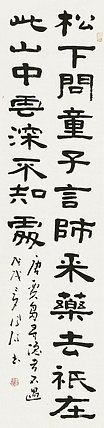 松下問童子言師采藥去祇在
此山中雲深不知處
唐賈島尋隱者不遇
戊戌
書